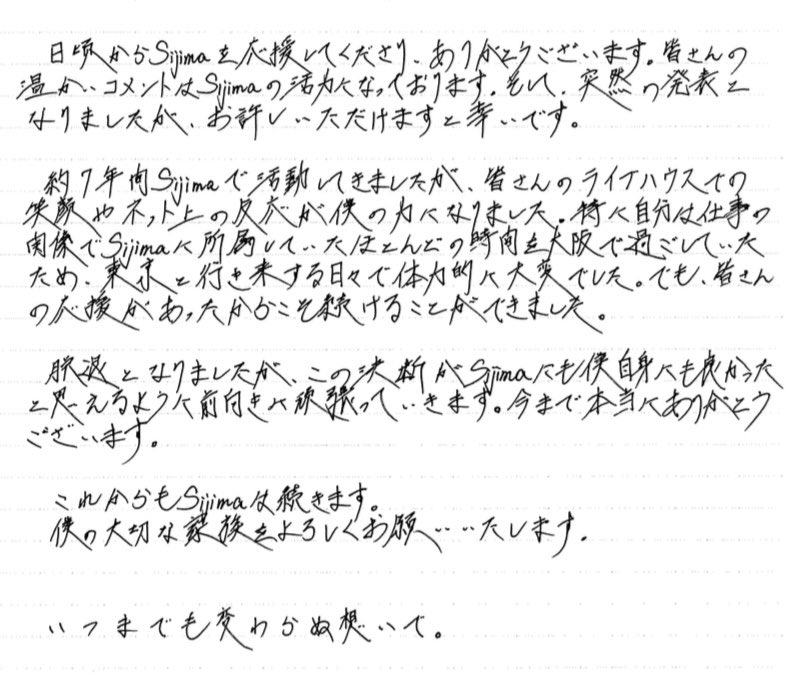 日頃からSijimaを応援してくださり、ありがとうございます。皆さんの
温かいコメントはSijimaの活力になっております。そして、突然の発表と
なりましたが、お許しいただけますと幸いです。
約7年間Sijimaで活動してきましたが、皆さんのライブハウスでの
笑顔やネット上の反応が僕の力になりました。特に自分は仕事の
関係でSijimaに所属していたほとんどの時間を大阪で過ごしていた
ため、東京と行き来する日々で体力的に大変でした。でも、皆さん
の応援があったからこそ続けることができました。
脱退となりましたが、この決断がSijimaにも僕自身にも良かった
と思えるように前向きに頑張っていきます。今まで本当にありがとう
ございます。
これからもSijimaは続きます。
僕の大切な家族をよろしくお願いいたします。
いつまでも変わらぬ想いで。